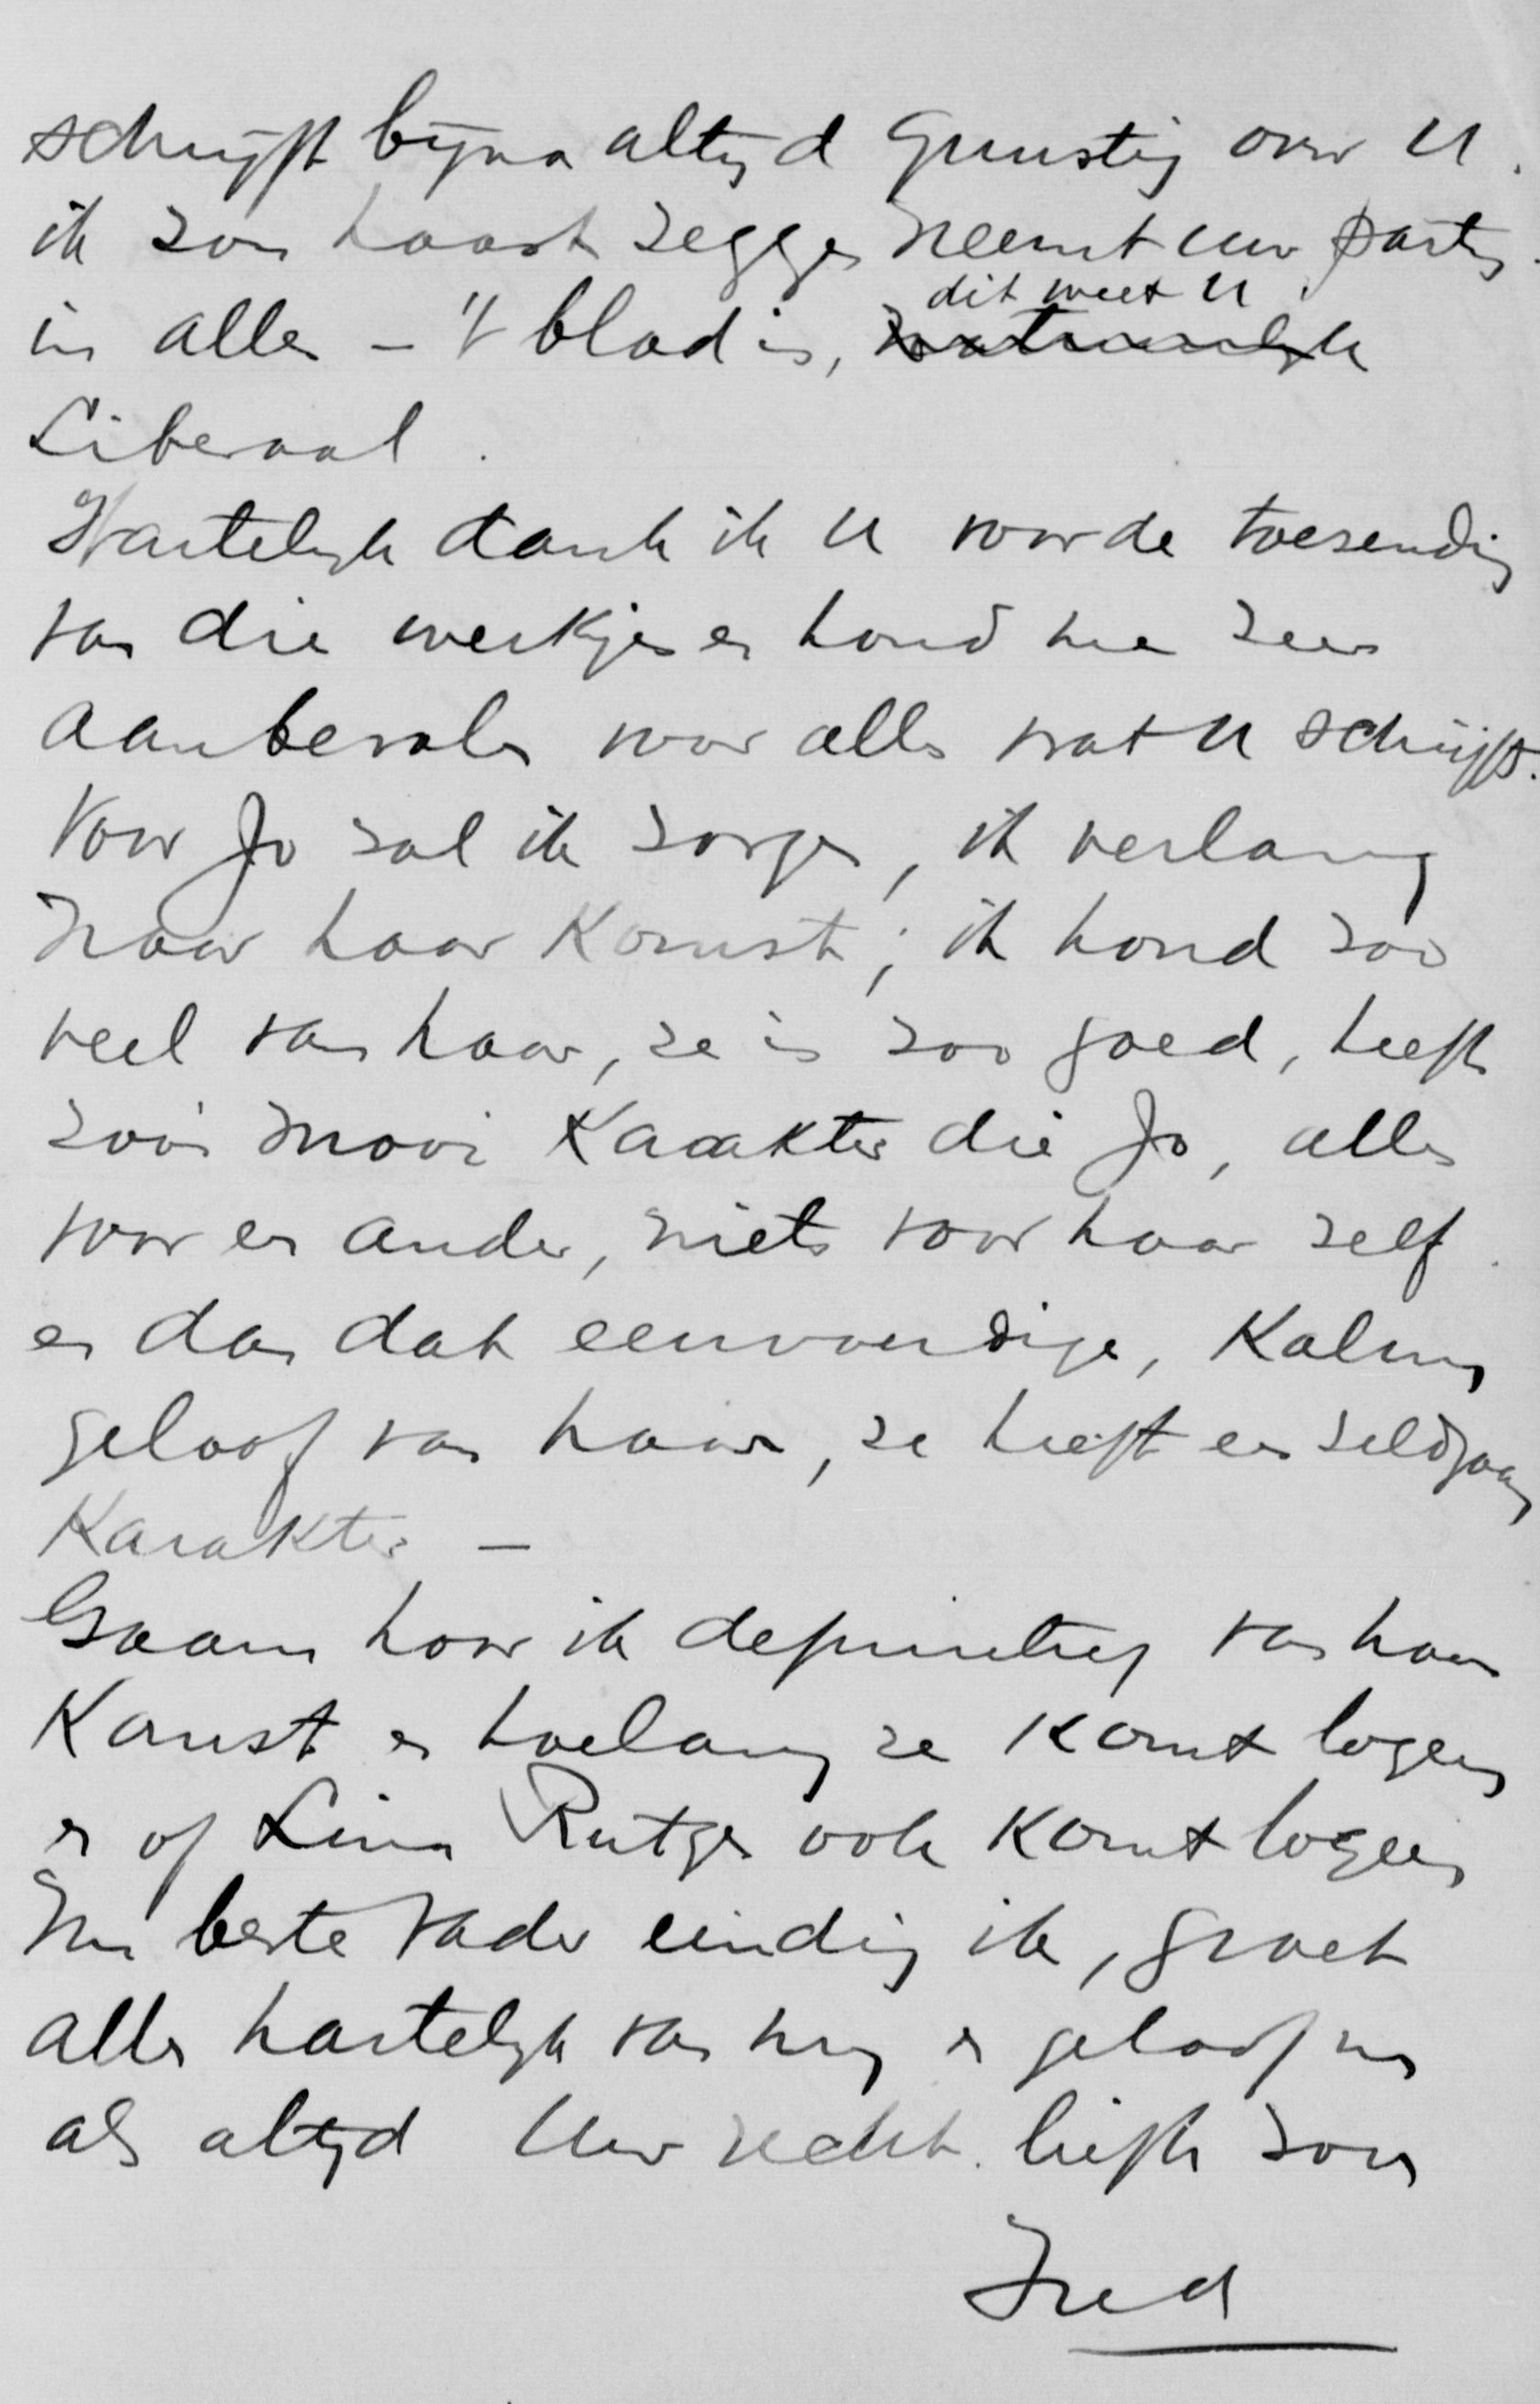 schrijft bijna altijd gunstig over U.
ik zou haast zeggen neemt uw partij
in alles – 't blad is, dit weet U, ~~natuurlijk~~
Liberaal.
Hartelijk dank ik U voor de toezending
van die werkjes en houd me zeer
aanbevolen voor alles wat U schrijft.
Voor Jo zal ik zorgen, ik verlang
naar haar Komst; ik houd zoo
veel van haar, ze is zoo goed, heeft
zoo'n mooi Karakter die Jo, alles
voor een ander, niets voor haar zelf.
en dan dat eenvoudige, Kalme
geloof van haar, ze heeft een zeldzaam
Karakter –
Gaarne hoor ik definitief van haar
Komst en hoelang ze Komt logeren
en of Lina Rutgers ook Komt logeren
Nu beste Vader eindig ik, groet
allen hartelijk van mij en geloof me
als altijd Uw zeer liefh zoon
Fred